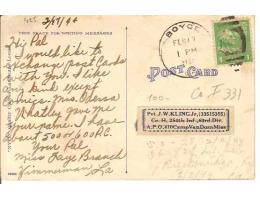 405 3/17/94
THIS SPACE FOR WRITING MESSAGES
BOYCE
1 PM
Hi Pal
I would like to
change post Cards
with You. I like
any kind except
comics. Mrs. Odessa
Whatley gave me
your name. I have
about 500 or 600 P.C.
Your Pal
Miss Faye Branch
Zimmerman, La
POST CARD
100-
Co F 331
Pvt J.W. KLING Jr, (33515355)
Co. H, 254th Inf., 63rd Div.
A.P.O. 410 Camp Van Dorn Miss